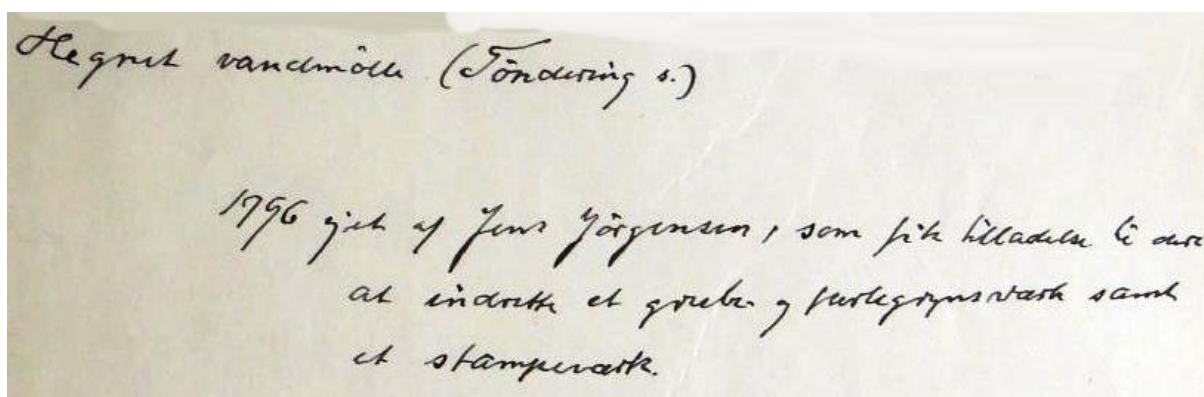 Hegnet vandmölle (Töndering s.)
1796 ejet af Jens Jörgensen, som fik tilladelse til der
at indrette et grube- og perlegrynsværk samt
et stampeværk.